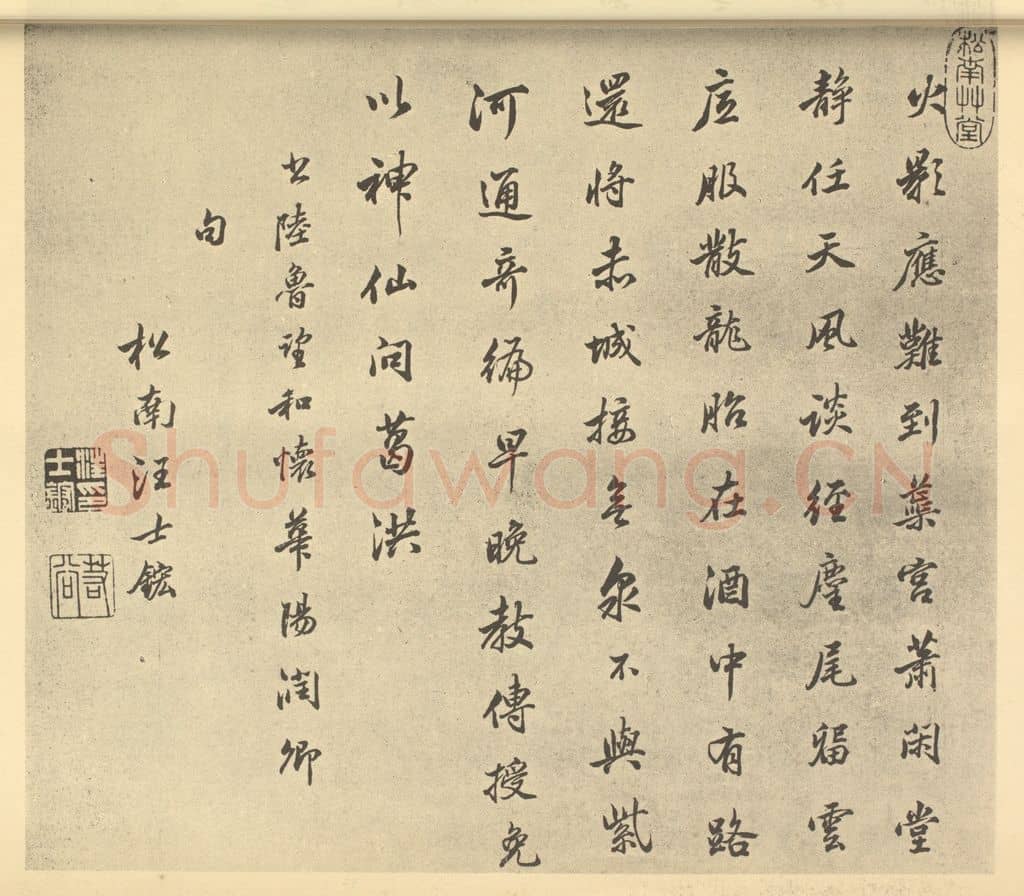 松南艸堂
火影應難到蘂宮蕭闲堂
静任天風談經麈尾留雲
底服散龍胎在酒中有路
還將赤城接無泉不與紫
河通奇編早晚教傳授免
以神仙問葛洪
书陸魯望和懷華陽潤卿
句
松南汪士鋐
汪士鋐印
若谷
Shufawang.CN